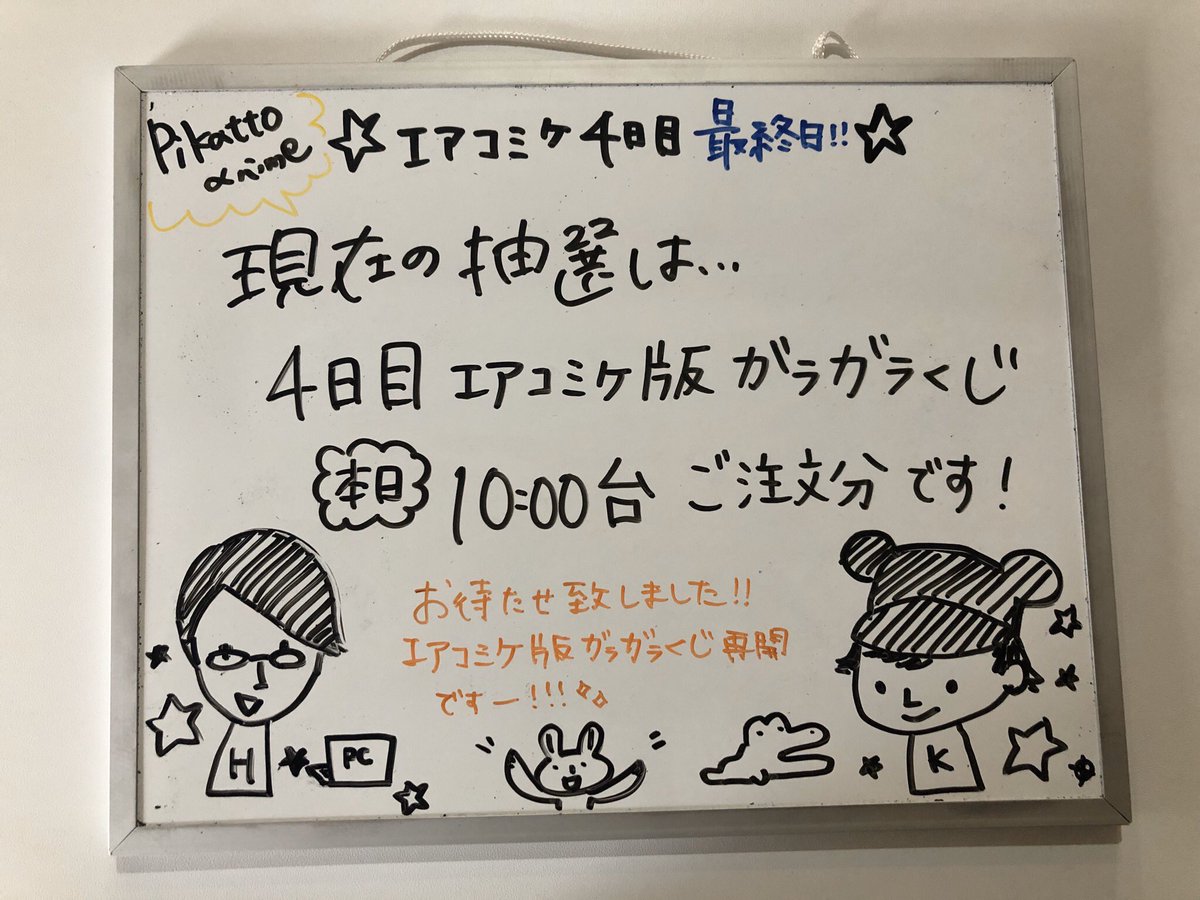 Pikatto
anime
☆エアコミケ4日目 最終日!!☆
現在の抽選は...
4日目 エアコミケ版 ガラガラくじ
本日 10:00台 ご注文分です!
お待たせ致しました!!
エアコミケ版ガラガラくじ再開
ですー!!!
H
PC
K